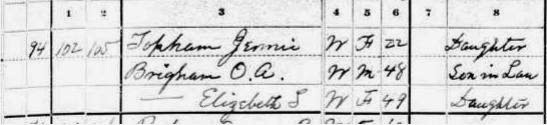 1 2 3 4 5 6 7 8
94 102 105 Topham Jennie W F 22 Daughter
Brigham O.A. W M 48 Son in Law
— Elizebeth S W F 49 Daughter